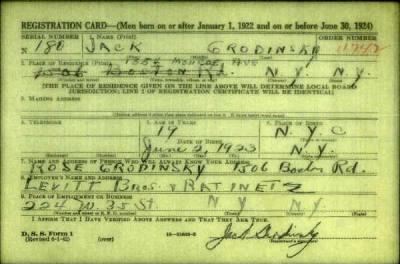 REGISTRATION CARD—(Men born on or after January 1, 1922 and on or before June 30, 1924)
SERIAL NUMBER 1. NAME (Print) ORDER NUMBER
N 180 JACK GRODINSKY
2. PLACE OF RESIDENCE (Print) 1386 MONROE AVE
1506 BOSTON Rd. N.Y. N.Y.
[THE PLACE OF RESIDENCE GIVEN ON THE LINE ABOVE WILL DETERMINE LOCAL BOARD
JURISDICTION; LINE 2 OF REGISTRATION CERTIFICATE WILL BE IDENTICAL]
3. MAILING ADDRESS
4. TELEPHONE 5. AGE IN YEARS 6. PLACE OF BIRTH
19 N.Y.C
DATE OF BIRTH
June 2, 1923 N.Y.
7. NAME AND ADDRESS OF PERSON WHO WILL ALWAYS KNOW YOUR ADDRESS
ROSE GRODINSKY 1506 Boston Rd.
8. EMPLOYER'S NAME AND ADDRESS
LEVITT BROS. & RATINETZ
9. PLACE OF EMPLOYMENT OR BUSINESS
224 W. 35 St. N Y N.Y.
I AFFIRM THAT I HAVE VERIFIED ABOVE ANSWERS AND THAT THEY ARE TRUE.
D. S. S. Form 1
(Revised 6-1-42) (over)
Jack Grodinsky
(Registrant's signature)